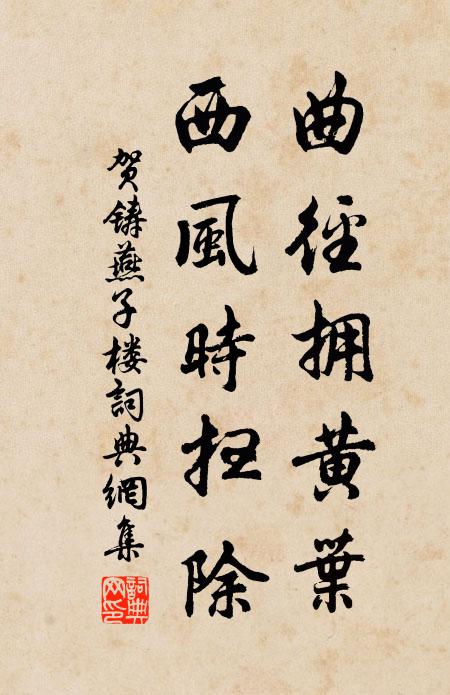 曲徑拥黄葉
西風時扫除
贺鑄燕子楼詞典網集
詞典
网印